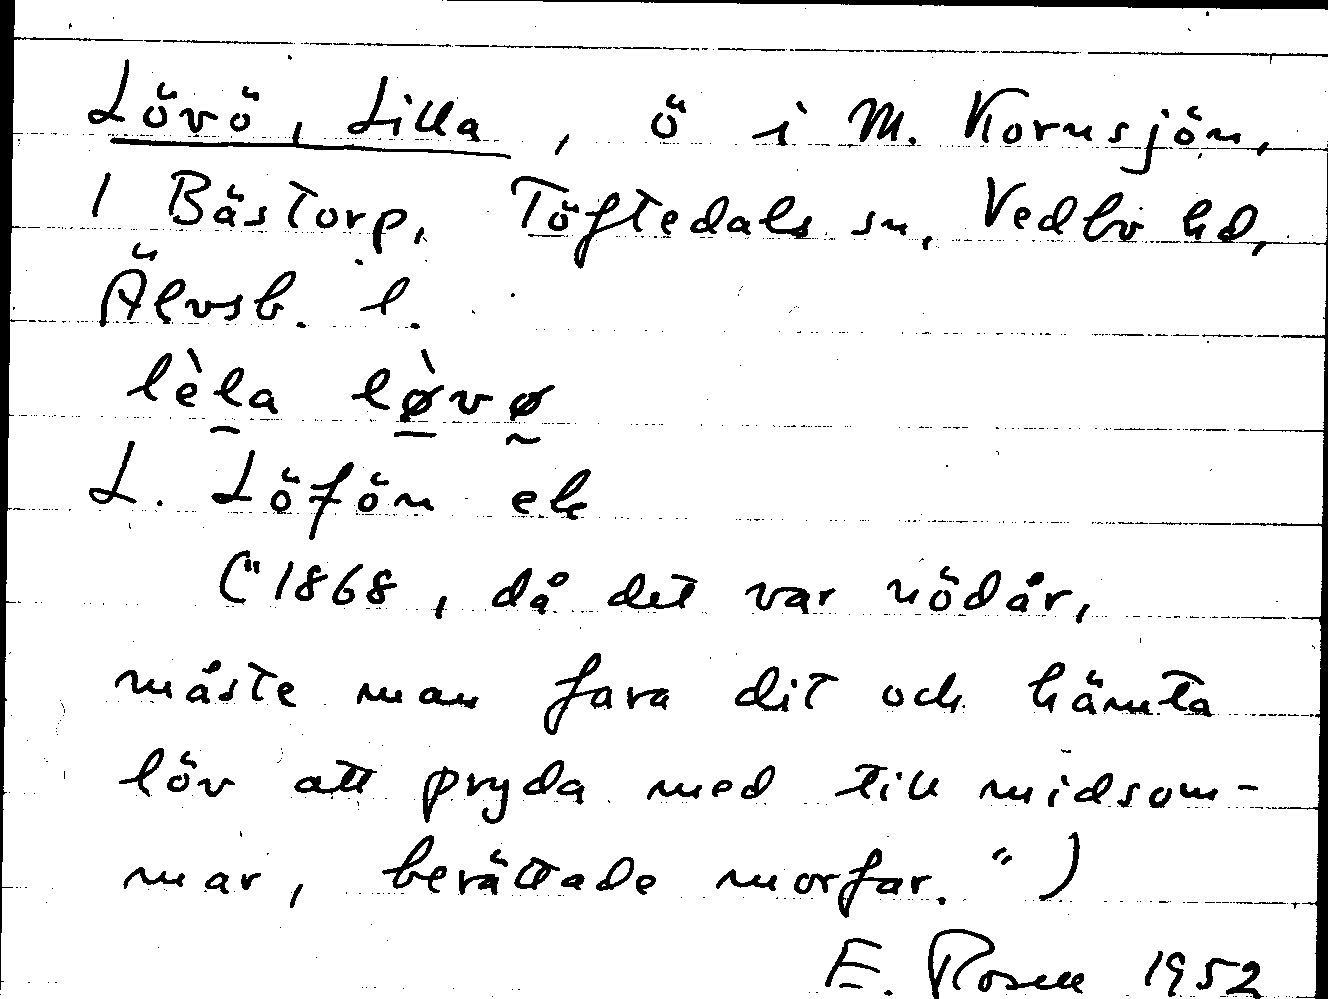 Lövö, Lilla, ö i M. Kornsjön,
1 Bästorp, Töftedals sn, Vedbo hd,
Älvsb. l.
lèla lø̀vø
L. Löfön ek
("1868, då det var nödår,
måste man fara dit och hämta
löv att pryda med till midsom-
mar, berättade morfar.")
E. Rosell 1952